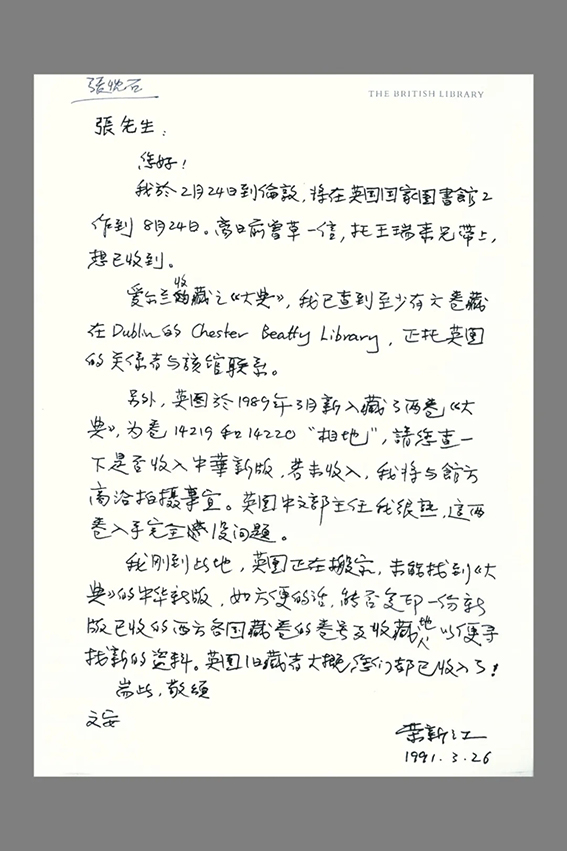 張忱石
THE BRITISH LIBRARY
張先生：
您好！
我於2月24日到倫敦，将在英国国家图書館工
作到8月24日。离日前曾草一信，托王瑞来兄带上，
想已收到。
爱尔兰收藏之《大典》，我已查到至少有六卷藏
在Dublin的Chester Beatty Library，正托英图
的关係者与該馆联系。
另外，英图於1989年3月新入藏了两卷《大
典》，为卷14219和14220“相地”，請您查一
下是否收入中華新版，若未收入，我将与館方
商洽拍摄事宜。英图中文部主任我很熟，這两
卷入手完全没问题。
我刚到此地，英图正在搬家，未能找到《大
典》的中华新版，如方便的话，能否复印一份新
版已收的西方各国藏卷的卷号及收藏地人以便寻
找新的资料。英图旧藏者大概您们都已收入了！
耑此，敬颂
文安
荣新江
1991.3.26